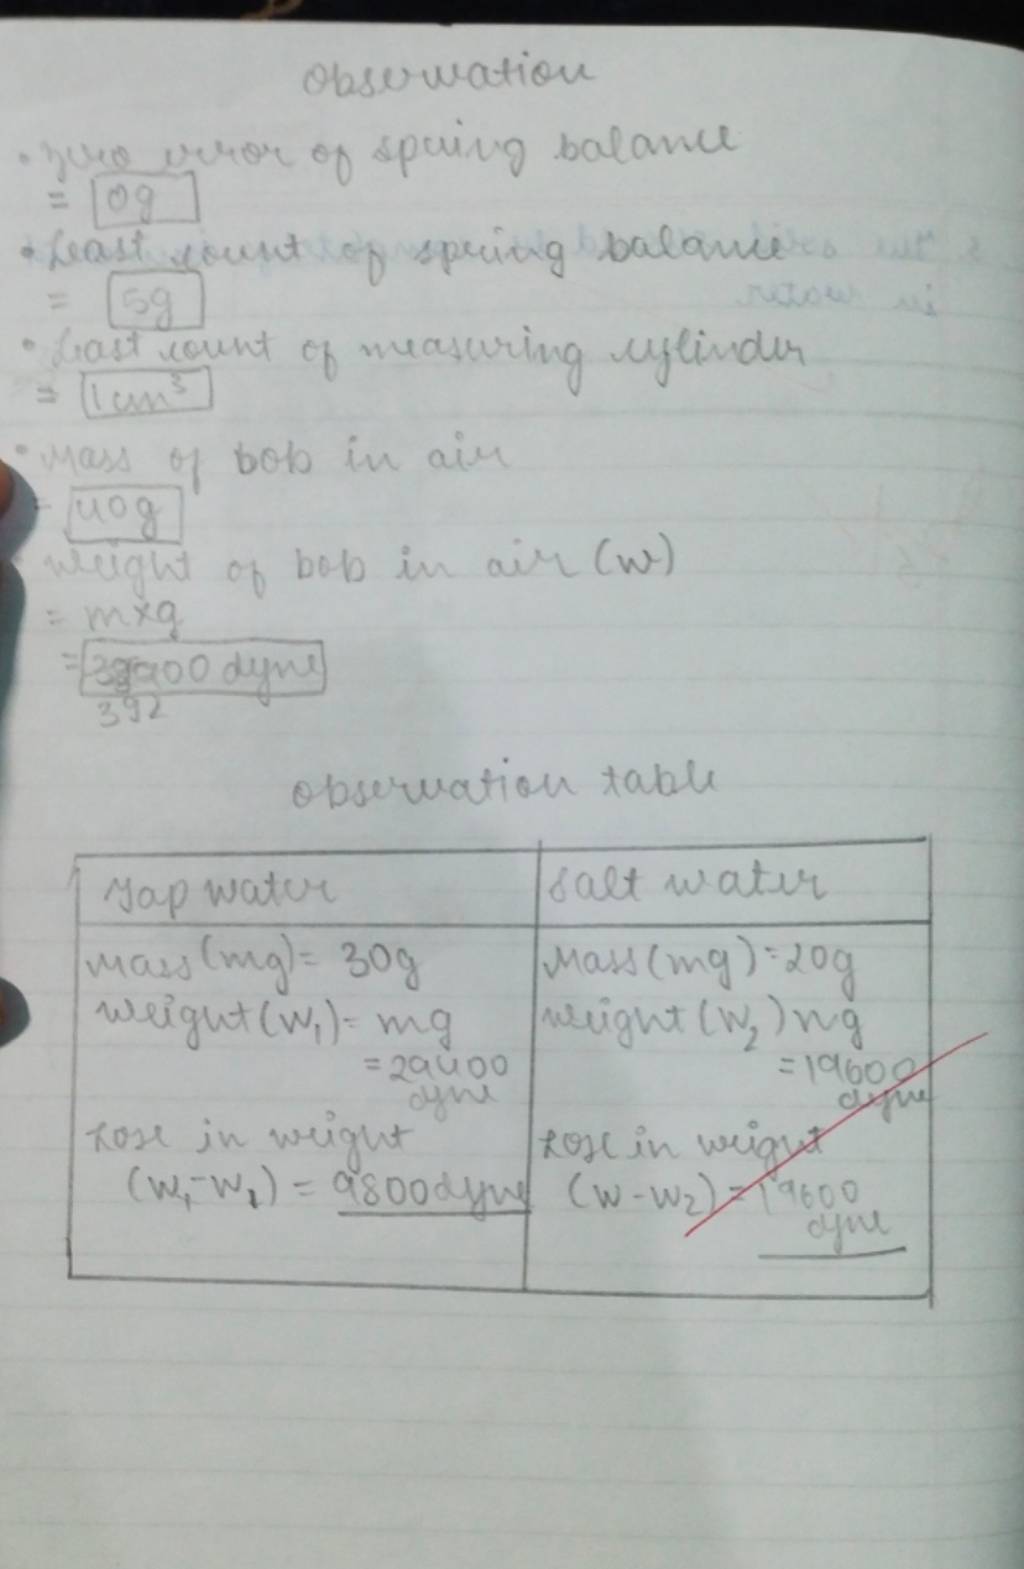 Observation
• Zero error of spring balance
= 0g
• Least count of spring balance
= 5g
• Least count of measuring cylinder
= 1cm³
• Mass of bob in air
= 40g
• Weight of bob in air (w)
= m×g
= 00 dyne
392
Observation table
Tap water
Mass(mg)= 30g
Weight(W₁)= mg
=29400
dyne
Lose in weight
(W₁-W₁) = 9800dyne
Salt water
Mass(mg)=20g
Weight(W₂) mg
=19600
dyne
Lose in weight
(W-W₂)=19600
dyne